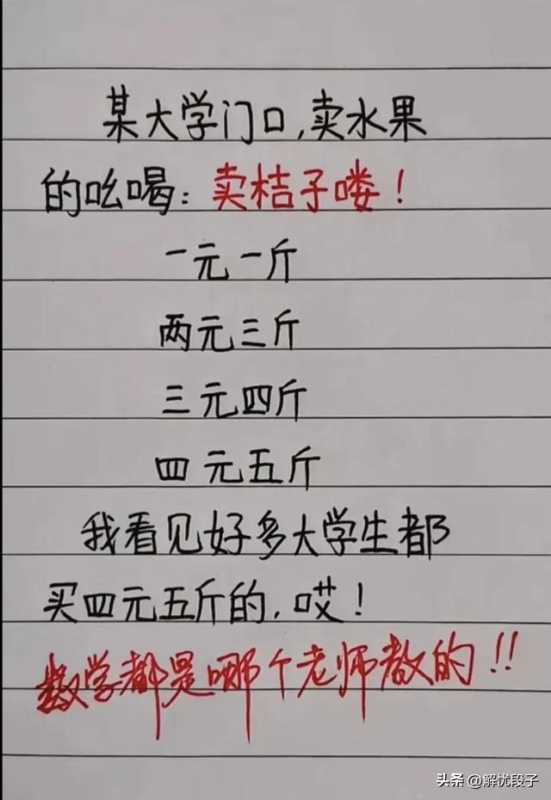 某大学门口,卖水果
的吆喝:卖桔子喽!
一元一斤
两元三斤
三元四斤
四元五斤
我看见好多大学生都
买四元五斤的,哎!
数学都是哪个老师教的!!
头条 @解忧段子